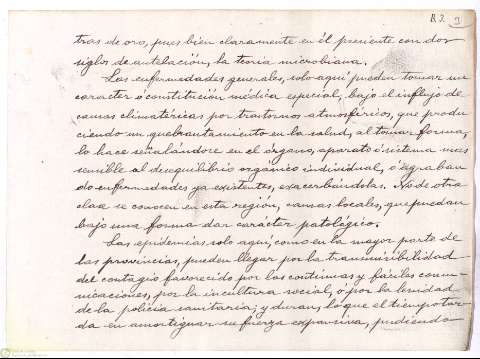 R.2 9
tras de oro, pues bien claramente en él presiente con dos
siglos de antelación, la teoria microbiana.
Las enfermedades generales, solo aquí pueden tomar un
caracter ó constitución médica especial, bajo el influjo de
causas climatéricas por trastornos atmosféricos, que produ-
ciendo un quebrantamiento en la salud, al tomar forma,
lo hace señalándose en el órgano, aparato ó sistema mas
sensible al desequilibrio orgánico individual, ó agraban
do enfermedades ya existentes, exacerbandolas. No de otra
clase se conocen en esta región, causas locales, que puedan
bajo una forma dar carácter patológico.
Las epidemias solo aquí, como en la mayor parte de
las provincias, pueden llegar por la transmisibilidad
del contagio favorecido por las continuas y fáciles comu-
nicaciones, por la incultura social, ó por la lenidad
de la policia sanitaria; y duran, lo que el tiempo tar-
da en amortiguar su fuerza expansiva, pudiendo